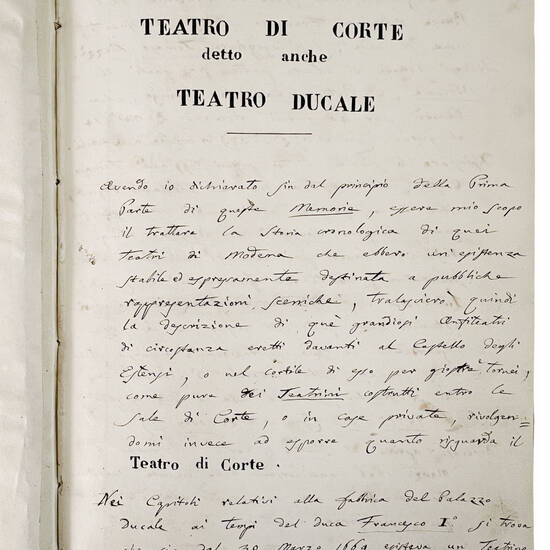 TEATRO DI CORTE
detto anche
TEATRO DUCALE
Avendo io dichiarato sin dal principio della Prima
Parte di queste Memorie, essere mio scopo
il trattare la Storia cronologica di quei
Teatri di Modena che ebbero un'esistenza
stabile ed espressamente destinata a pubbliche
rappresentazioni sceniche, tralascierò quindi
la descrizione di què grandiosi Anfiteatri
di circostanza eretti davanti al Castello degli
Estensi, o nel cortile di esso per giostre, Tornei,
come pure dei Teatrini costrutti entro le
Sale di Corte, o in case private, rivolgen=
domi invece ad esporre quanto risguarda il
Teatro di Corte.
Nei Capitoli relativi alla fabbrica del Palazzo
Ducale ai tempi del duca Francesco I° si trova
che sin dal 30 Marzo 1669 esisteva un Teatrino